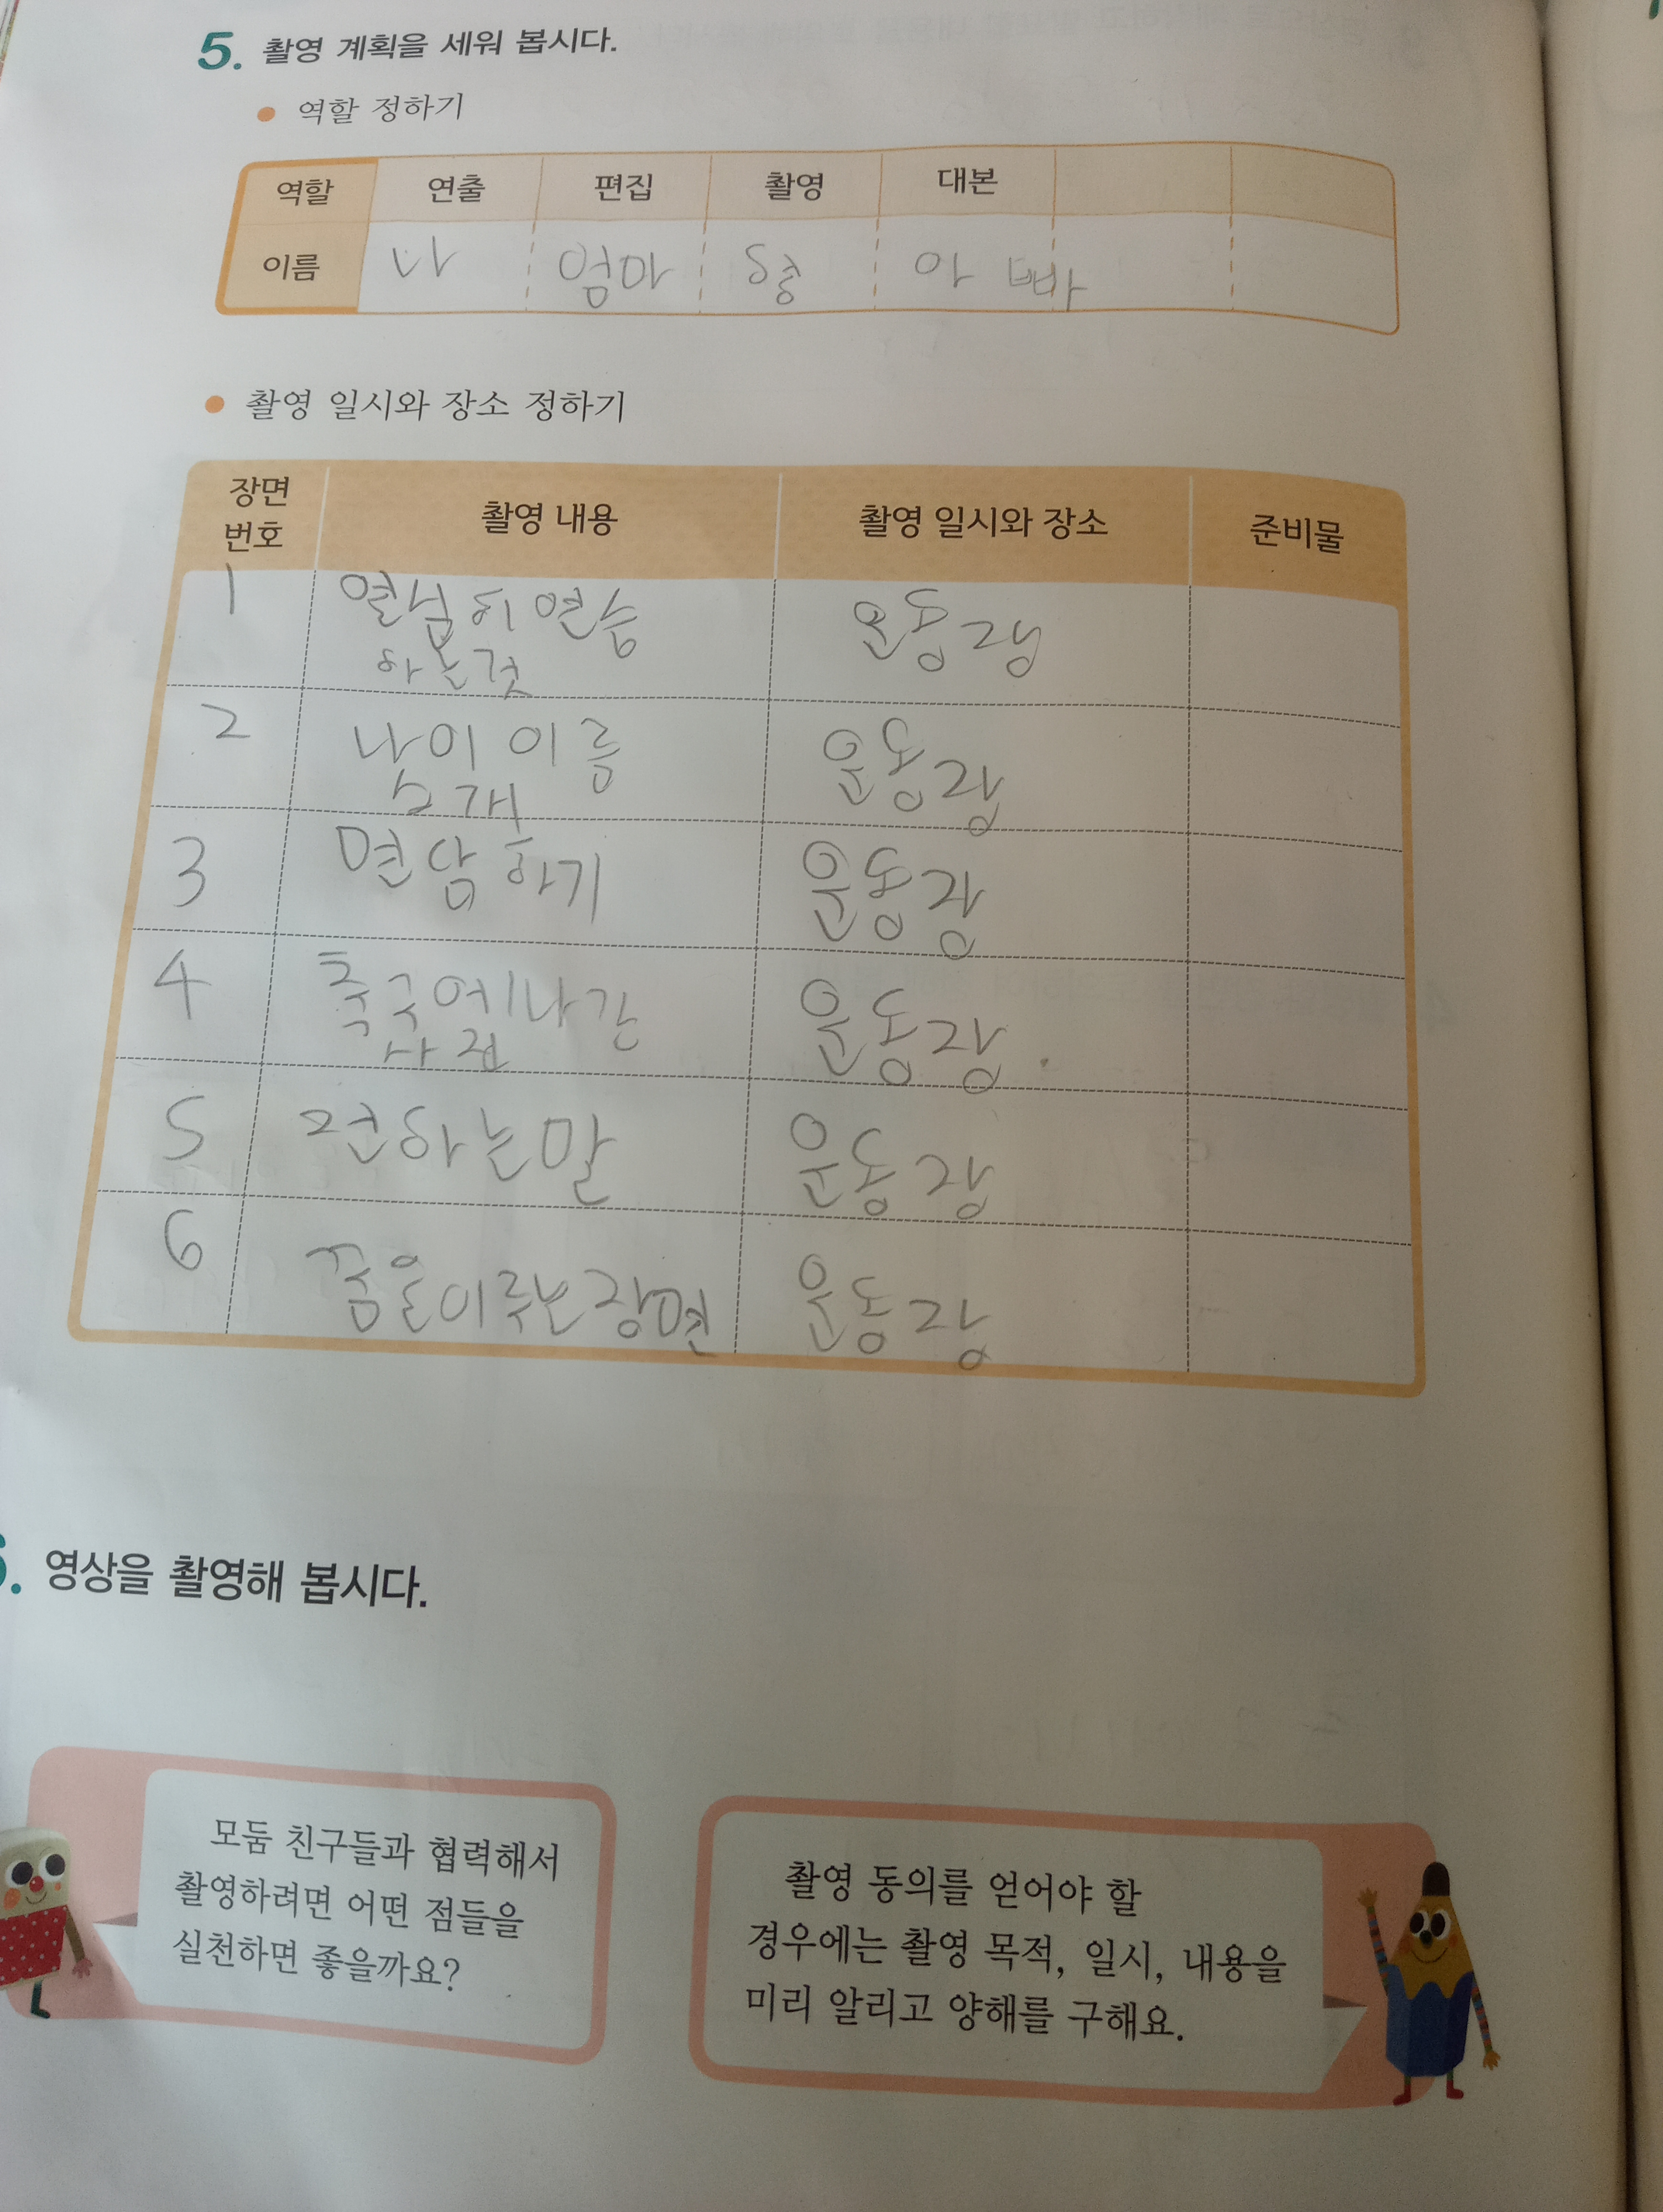 5. 촬영 계획을 세워 봅시다.
● 역할 정하기
역할 연출 편집 촬영 대본
이름 나 엄마 형 아빠
● 촬영 일시와 장소 정하기
장면
번호 촬영 내용 촬영 일시와 장소 준비물
1 열심히 연습 운동장
하는것
2 나이 이름 운동장
소개
3 면담하기 운동장
4 축구에 나간 운동장.
사진
5 전하는말 운동장
6 꿈을이루는장면 운동장
6. 영상을 촬영해 봅시다.
모둠 친구들과 협력해서
촬영하려면 어떤 점들을
실천하면 좋을까요?
촬영 동의를 얻어야 할
경우에는 촬영 목적, 일시, 내용을
미리 알리고 양해를 구해요.